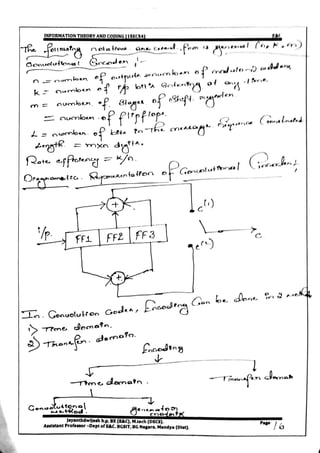 INFORMATION THEORY AND CODING (15EC54)
The following notations are used for a general (n, k, m)
Convolutional Encoder :-
n = number of outputs = number of modulo-2 adders
k = number of i/p bits entering at any time.
m = number of stages of shift register
= number of flipflops.
L = number of bits in the message sequence
Length = mxn digits.
Rate efficiency = K/n.
Representation of Convolutional Encoder
+
c(1)
i/p.
FF1 FF2 FF3
c
c(2)
+
In Convolution Codes, Encoding Can be done in 2 methods
1) Time domain.
2) Transfer domain.
Encoding
Time domain
Transfer domain
Convolutional method.
generator matrix
Jayanthdwijesh h p. BE (E&C), M.tech (DECS).
Assistant Professor –Dept of E&C. BGSIT, BG Nagara, Mandya (Dist).
Page 16